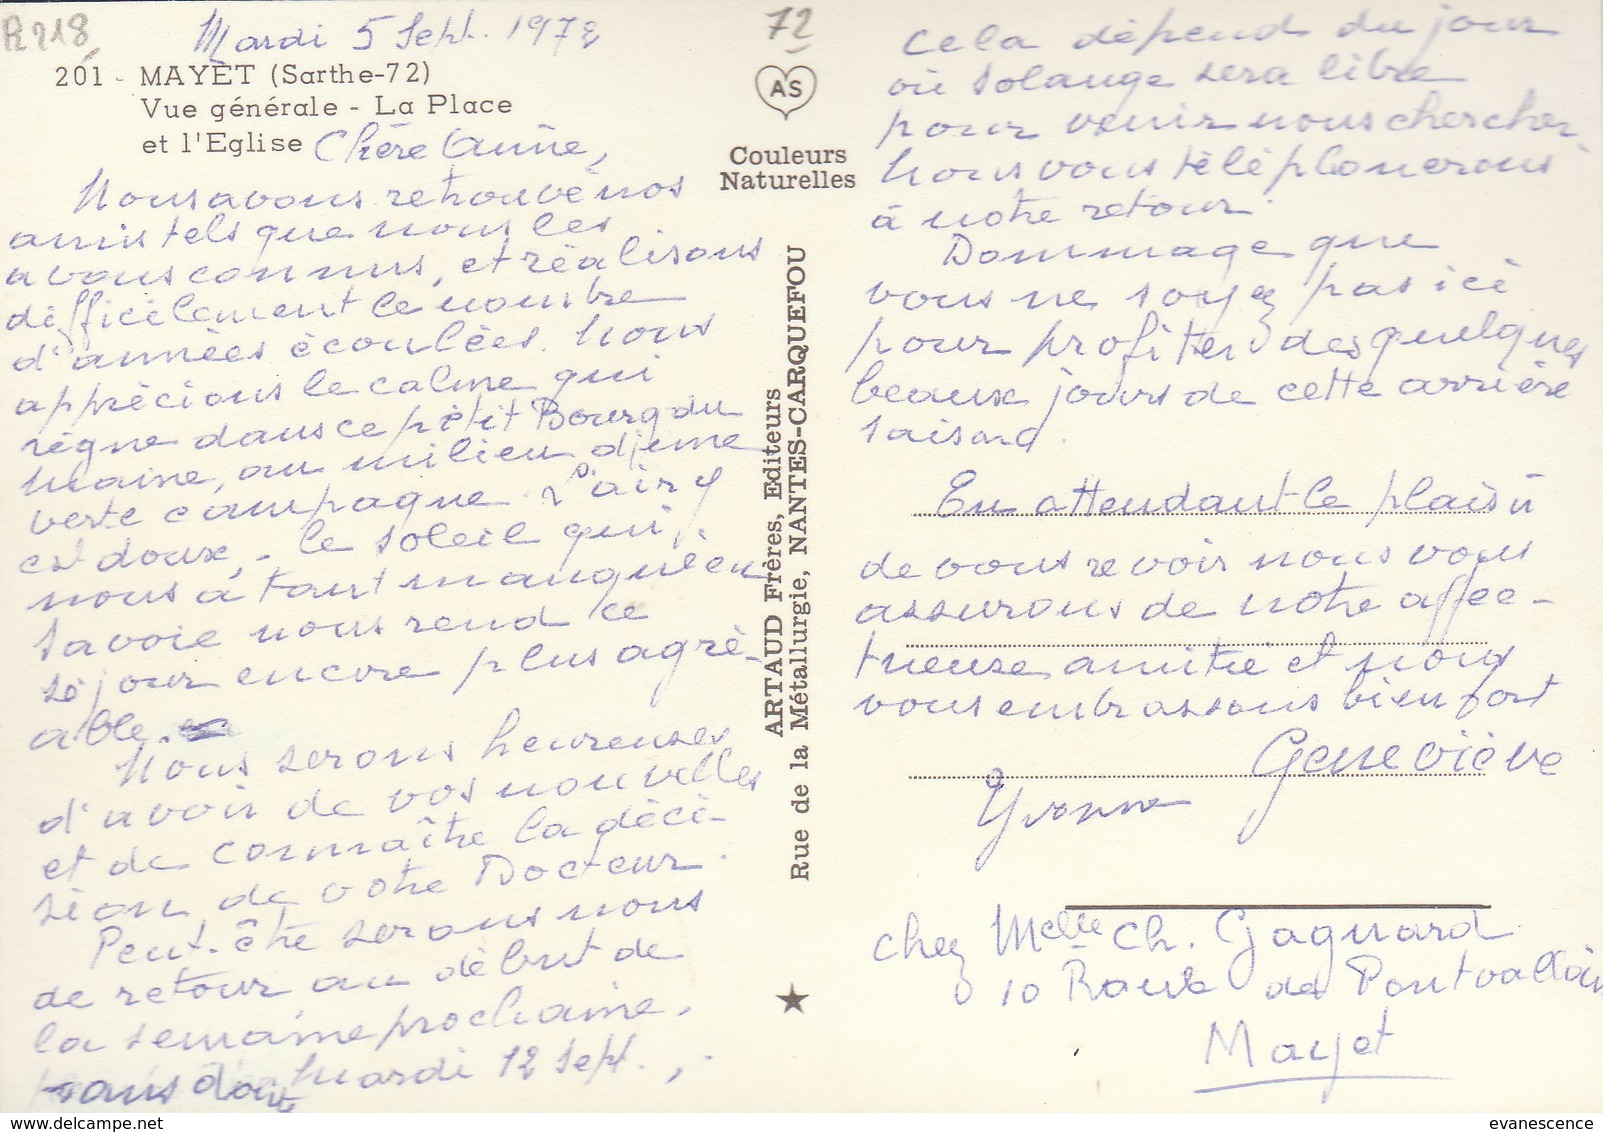 R218
Mardi 5 Sept. 1978
72
201 - MAYET (Sarthe-72)
Vue générale - La Place
et l'Eglise
Chère Anne,
Nous avons retrouvé nos
amis tels que nous les
avons connus, et réalisons
difficilement le nombre
d'années écoulées. Nous
apprécions le calme qui
règne dans ce petit Bourg du
Maine, au milieu d'une
verte campagne. L'air y
est doux, - le soleil qui
nous a tant manqué en
Savoie nous rend ce
séjour encore plus agré-
able.
Nous serons heureuses
d'avoir de vos nouvelles
et de connaître la déci-
sion de votre Docteur.
Peut-être serons nous
de retour au début de
la semaine prochaine,
sans doute Mardi 12 Sept.,
AS
Couleurs
Naturelles
ARTAUD Frères, Editeurs
Rue de la Métallurgie, NANTES-CARQUEFOU
Cela dépend du jour
où Solange sera libre
pour venir nous chercher.
Nous vous téléphonerons
à notre retour.
Dommage que
vous ne soyez pas ici
pour profiter des quelques
beaux jours de cette arrière
saison.
En attendant le plaisir
de vous revoir nous vous
assurons de notre affec-
tueuse amitié et nous
vous embrassons bien fort
Geneviève
Yvonne
chez Melle Ch. Gagnard
10 Route de Pontvallain
Mayet
evanescence